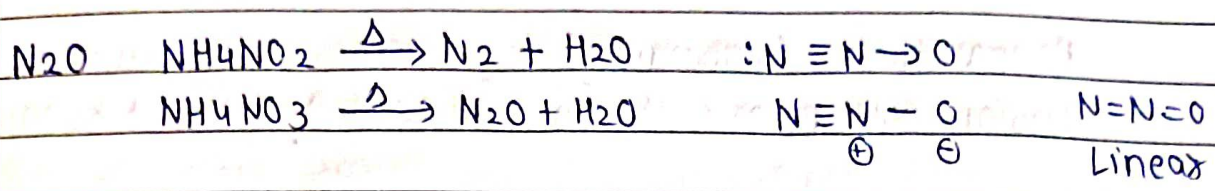 N2O NH4NO2 —Δ→ N2 + H2O :N≡N→O
NH4NO3 —Δ→ N2O + H2O N≡N–O N=N=O
⊕ ⊖ Linear